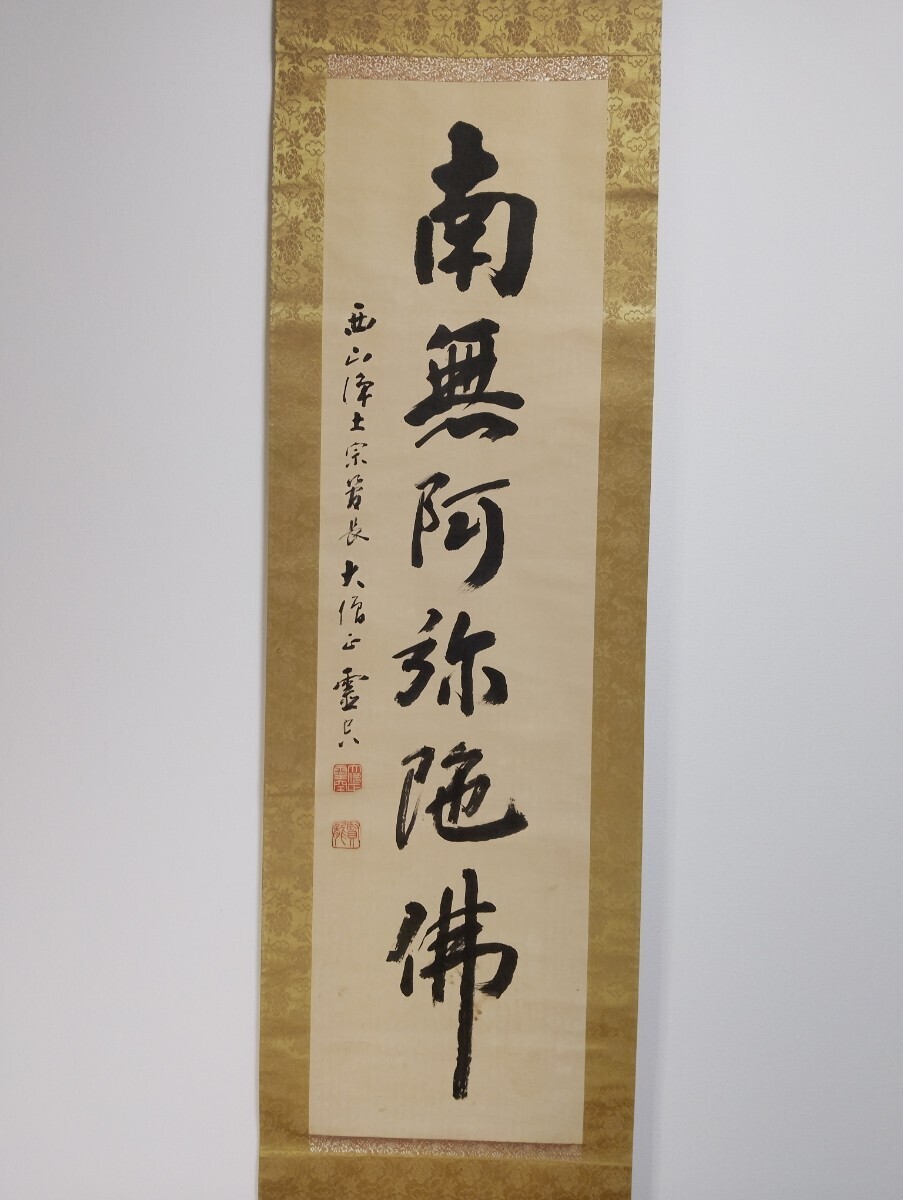 南無阿弥陀佛
西山浄土宗管長大僧正霊空